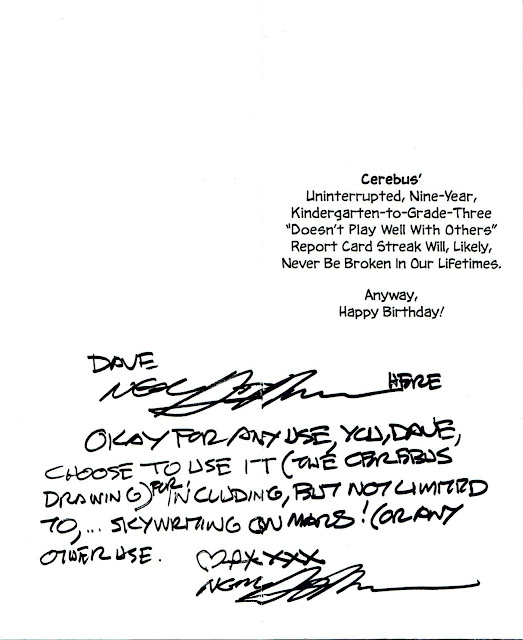 Cerebus'
Uninterrupted, Nine-Year,
Kindergarten-to-Grade-Three
"Doesn't Play Well With Others"
Report Card Streak Will, Likely,
Never Be Broken In Our Lifetimes.
Anyway,
Happy Birthday!
DAVE
NEAL HERE
OKAY FOR ANY USE, YOU, DAVE,
CHOOSE TO USE IT (THE CEREBUS
DRAWING) FOR: INCLUDING, BUT NOT LIMITED
TO,... SKYWRITING ON MARS! (OR ANY
OTHER USE.
XXX